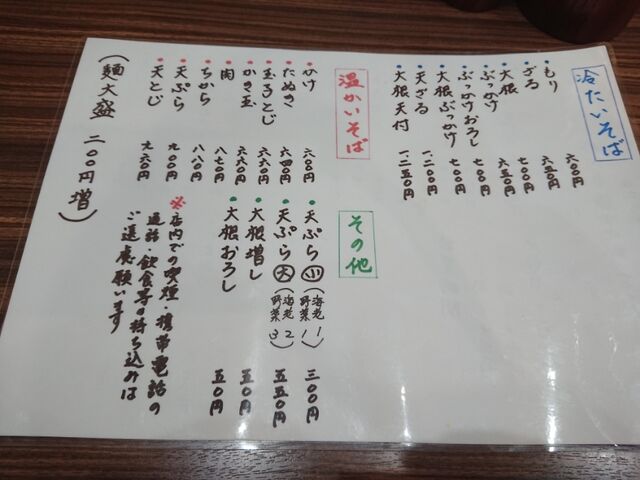 冷たいそば
もり 六〇〇円
ざる 六五〇円
大根 七〇〇円
ぶっかけ 六五〇円
ぶっかけおろし 七〇〇円
大根ぶっかけ 七〇〇円
天ざる 一二〇〇円
大根天付 一二五〇円
温かいそば
かけ 六〇〇円
たぬき 六四〇円
玉子とじ 六六〇円
かき玉 六六〇円
肉 八七〇円
ちから 八八〇円
天ぷら 九〇〇円
天とじ 九六〇円
(麺大盛 二〇〇円増)
その他
天ぷら小(海老1 野菜1) 三〇〇円
天ぷら大(海老2 野菜3) 五五〇円
大根増し 五〇円
大根おろし 五〇円
※店内での喫煙・携帯電話の
通話・飲食等の持ち込みは
ご遠慮願います